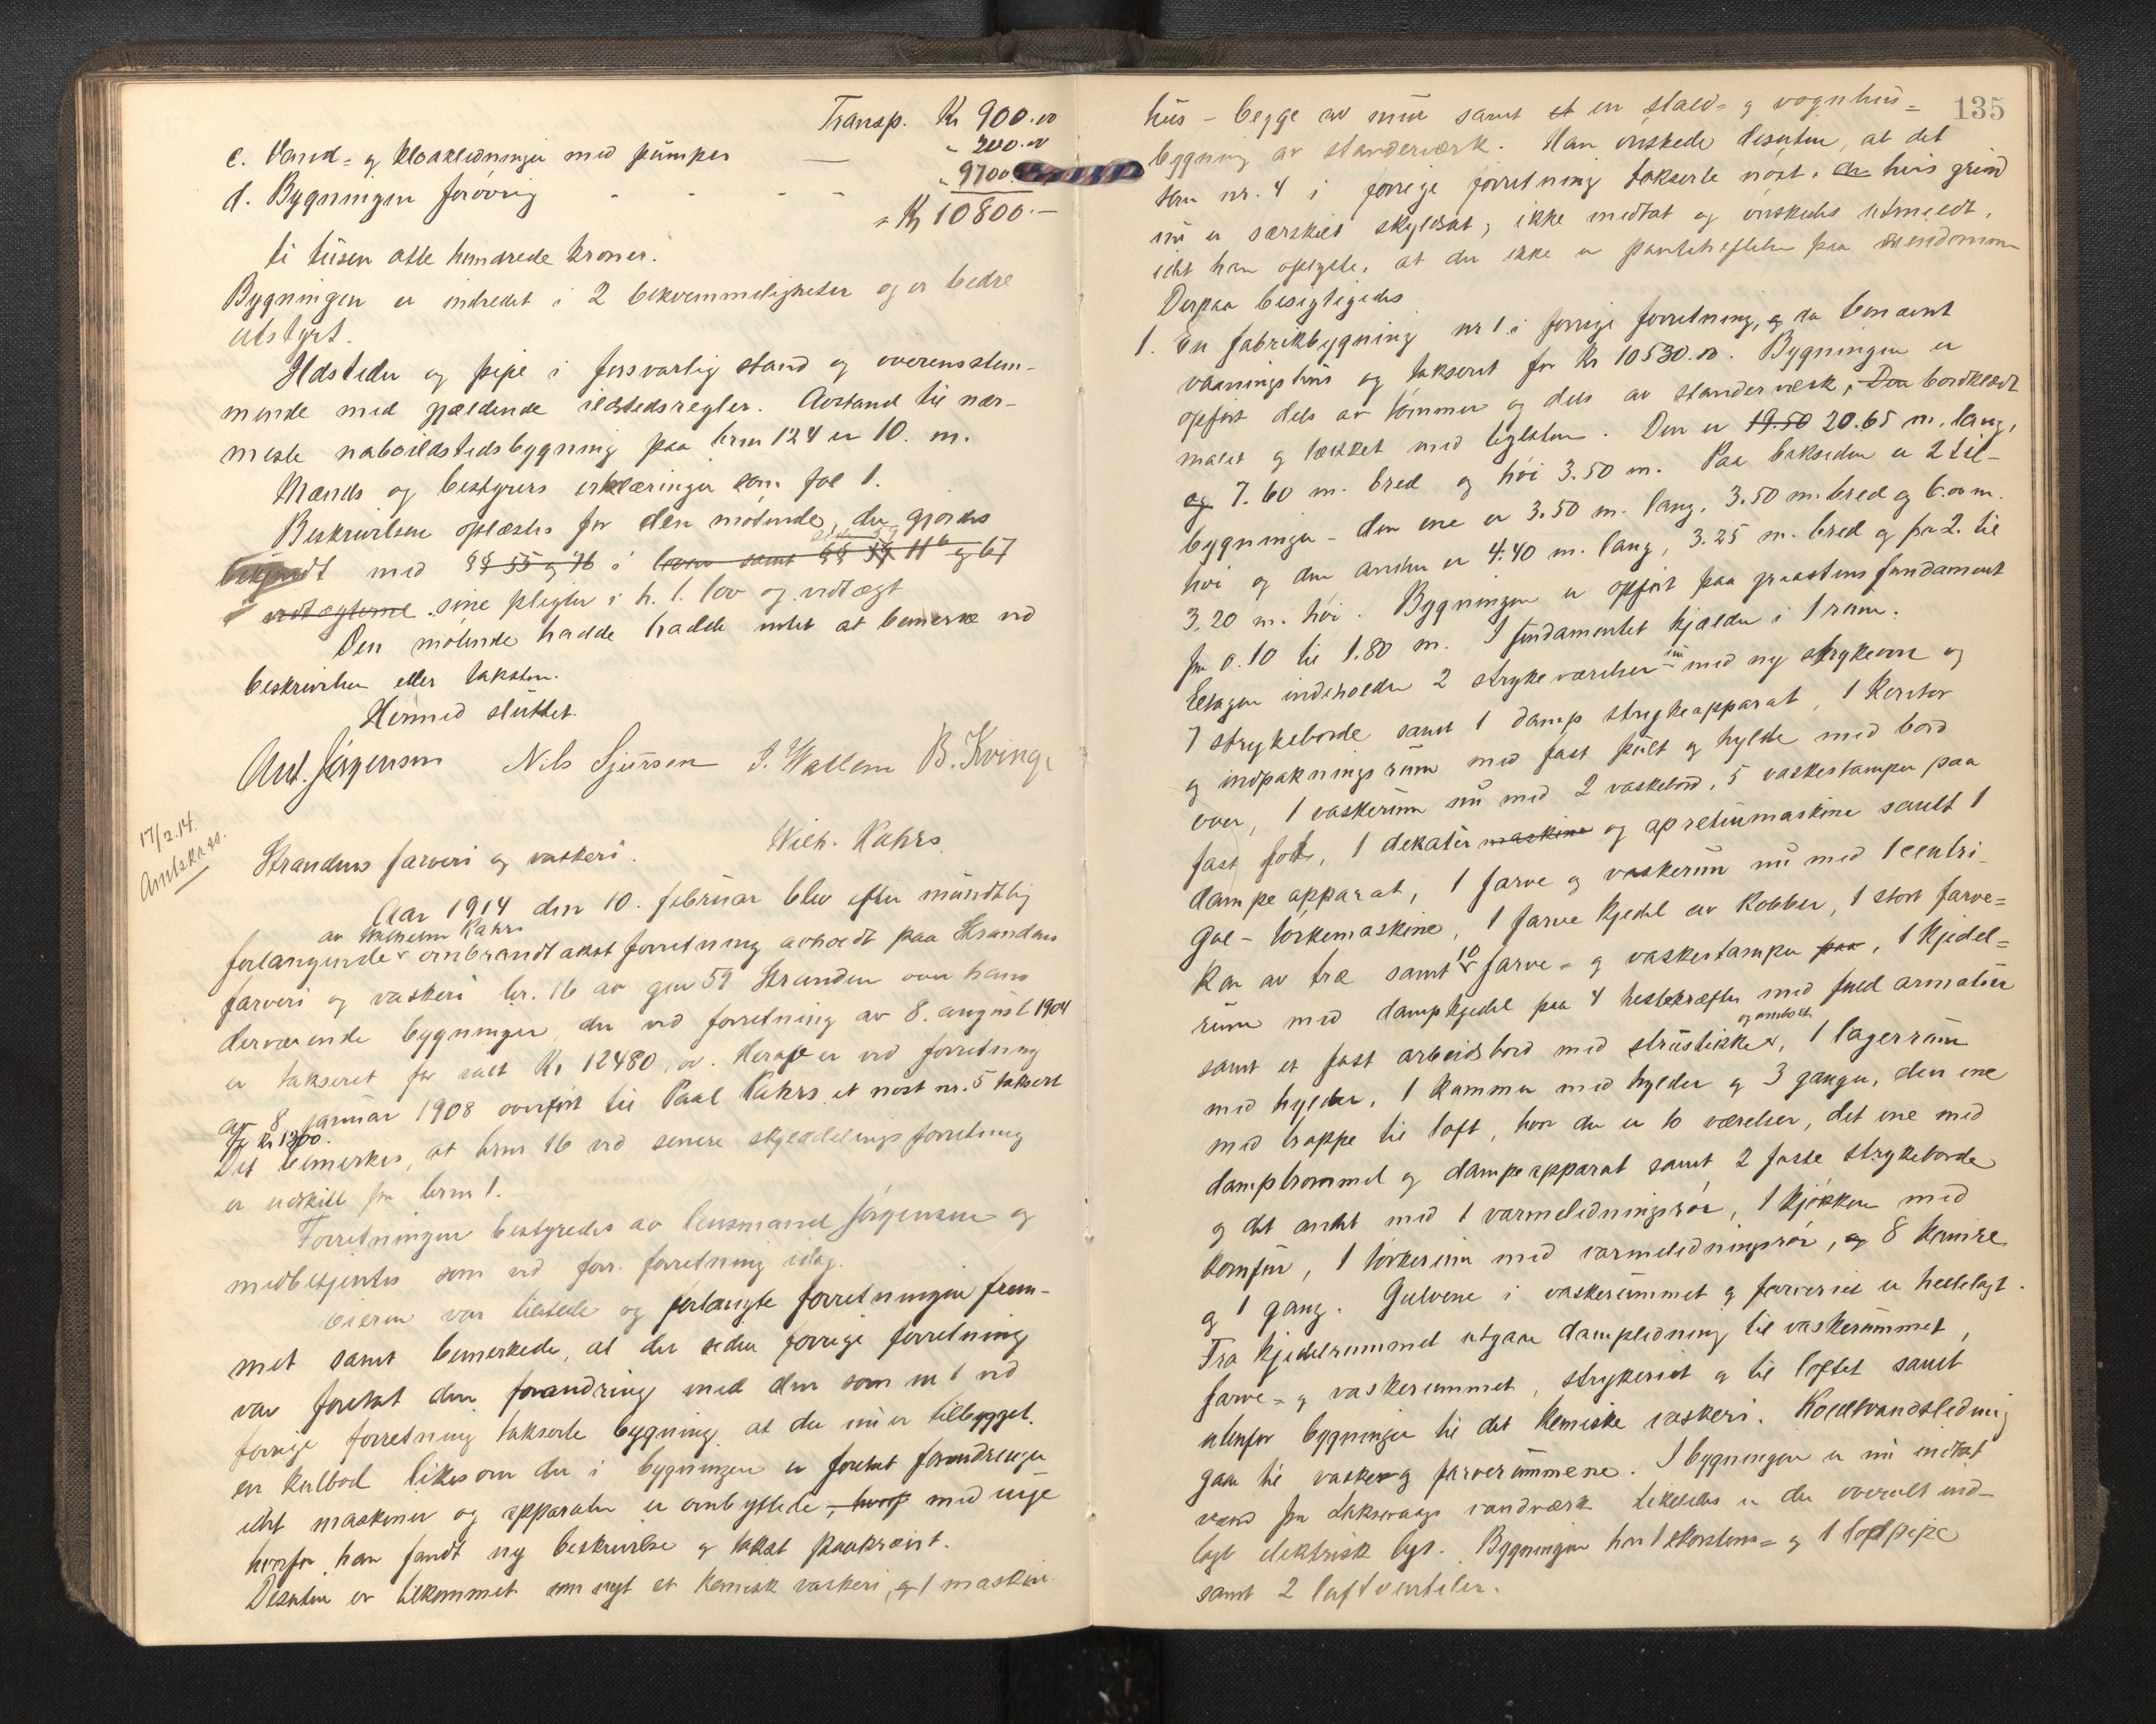 Transp. Kr 900.00
c. Vand- og kloakledninger med pumper — " 200.00
d. Bygningen forøvrig - - - - " 9700.
= Kr 10800.—
ti tusen otte hundrede kroner.
Bygningen er indredet i 2 bekvemmeligheter og er bedre
utstyrt.
Ildsteder og pipe i forsvarlig stand og overensstem-
mende med gjældende ildstedsregler. Avstand til nær-
meste naboildstedsbygning paa brnr 124 er 10. m.
Mænds og bestyrers erklæringer som fol 1.
Beskrivelsen oplæstes for den møtende, der gjordes
bekjendt med §§ 55 og 76 i loven samt §§ 11 b og 67
i vedtægterne sine pligter i h. t. lov og vedtægt
Den møtende hadde hadde intet at bemerke ved
beskrivelsen eller taksten.
Hermed sluttet.
Ant. Jørgensen Nils Sjursen J. Wallem B. Kvinge
17/2.14.
Amtskass.
Wilh. Kahrs
Strandens farveri og vaskeri.
Aar 1914 den 10. februar blev efter mundtlig
av Wilhelm Kahrs
forlangende ombrandtakstforretning avholdt paa Strandens
farveri og vaskeri br. 16 av gnr 59 Stranden over hans
derværende bygninger, der ved forretning av 8. august 1904
er takseret for ialt Kr 12480,00. Herav er ved forretning
av 8 januar 1908 overført til Paal Kahrs et nøst nr. 5 taksert
for Kr 1300.
Det bemerkes, at brnr 16 ved senere skylddelingsforretning
er utskilt fra brnr 1.
Forretningen bestyredes av lensmand Jørgensen og
medbetjentes som ved forr. forretning idag.
Eieren var tilstede og forlangte forretningen frem-
met samt bemerkede, at der siden forrige forretning
var foretat den forandring med den som nr 1 ved
forrige forretning takserte bygning at der nu er tilbygget
en kulbod likesom der i bygningen er foretat forandringer
idet maskiner og apparater er ombyttede, hvorf med nye
hvorfor han fandt ny beskrivelse og takst paakrævet.
Desuten er tilkommet som nyt et kemisk vaskeri, og 1 maskin-
135
hus - begge av mur samt et en stald- og vognhus-
bygning av standerværk. Han ønskede desuten, at det
som nr. 4 i forrige forretning takserte nøst, der hvis grund
nu er særskilt skyldsat, ikke medtat og ønskedes utmeldt,
idet han oplyste, at der ikke er pantehæftelser paa eiendommen
Derpaa besigtigedes
1. En fabrikbygning nr 1 i forrige forretning, og da benævnt
vaaningshus og takseret for Kr 10530.00. Bygningen er
opført dels av tømmer og dels av standerværk, Den bordklædt
malet og tækket med teglsten. Den er 19.50 20.65 m. lang,
og 7.60 m. bred og høi 3.50 m. Paa baksiden er 2 til-
bygninger - den ene er 3.50 m. lang, 3.50 m. bred og 6.00 m.
høi og den anden er 4.40 m. lang, 3.25 m. bred og fra 2. til
3.20 m. høi. Bygningen er opført paa graastens fundament
fra 0.10 til 1.80 m. I fundamentet kjælder i 1 rum.
Etagen indeholder 2 strykeværelser nu med ny strykeovn og
7 strykeborde samt 1 damp strykeapparat, 1 kontor
og indpakningsrum med fast pult og hylde med bord
over, 1 vaskerum nu med 2 vaskebord, 5 vaskestamper paa
fast fod, 1 dekatér maskine og apreturmaskine samt 1
dampeapparat, 1 farve og vaskerum nu med 1 centri-
gal-tørkemaskine, 1 farve kjedel av kobber, 1 stort farve-
kar av træ samt 10 farve- og vaskestamper paa, 1 kjedel-
rum med dampkjedel paa 4 hestekræfter med fuld armatur
og ambolt
samt et fast arbeidsbord med skrustikke, 1 lagerrum
med hylder, 1 kammer med hylder og 3 ganger, den ene
med trappe til loft, hvor der er to værelser, det ene med
damptrommel og dampeapparat samt 2 faste strykeborde
og det andet med 1 varmeledningsrør, 1 kjøkken med
komfur, 1 tørkerum med varmeledningsrør, og 8 kamre
og 1 gang. Gulvene i vaskerummet og farveriet er hellelagt.
Fra kjedelrummet utgaar dampledning til vaskerummet,
farve- og vaskerummet, strykeriet og til loftet samt
utenfor bygningen til det kemiske vaskeri. Koldtvandsledning
gaar til vaske og farverummene. I bygningen er nu indtat
vand fra Laksevaags vandværk. Likeledes er der overalt ind-
lagt elektrisk lys. Bygningen har 1 skorstens- og 1 loftpipe
samt 2 luftventiler.